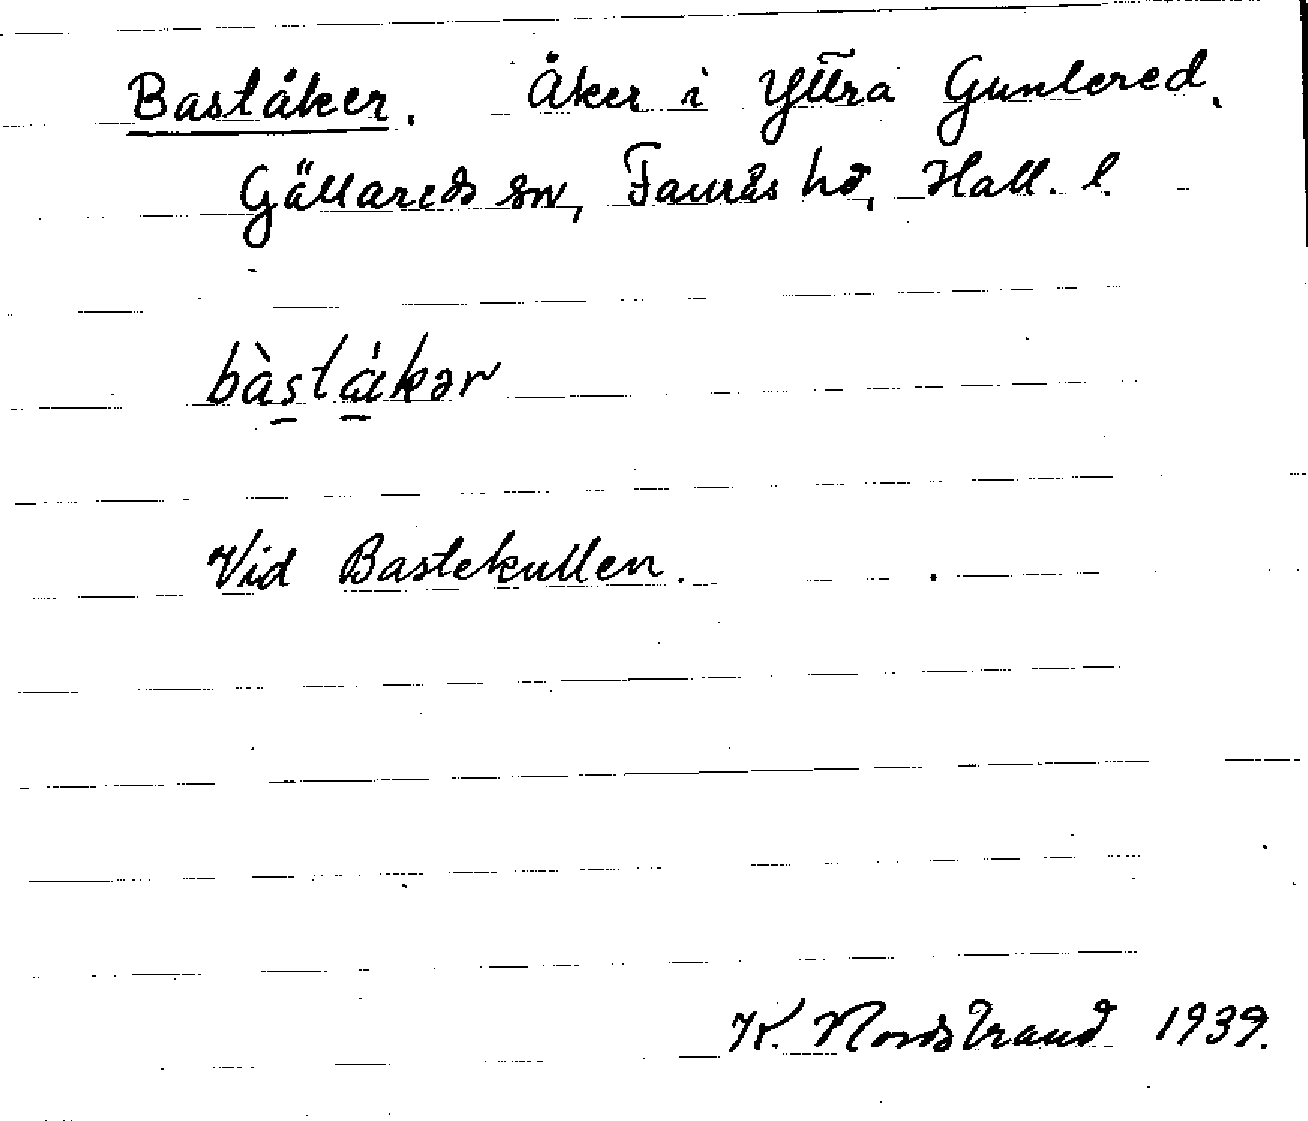 Baståker. Åker i Yttra Gunlered,
Gällareds sn, Faurås hd, Hall. l.
bàstákər
Vid Bastekullen.
K. Nordstrand 1939.